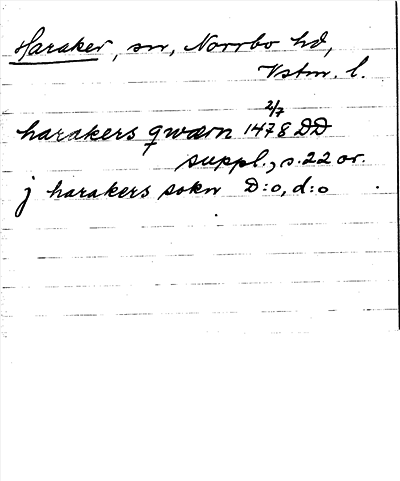 Haraker, sn, Norrbo hd,
Vstm. l.
harakers qwærn 1478 2/7 DD
suppl., s. 22 or.
j harakers sokn D:o, d:o